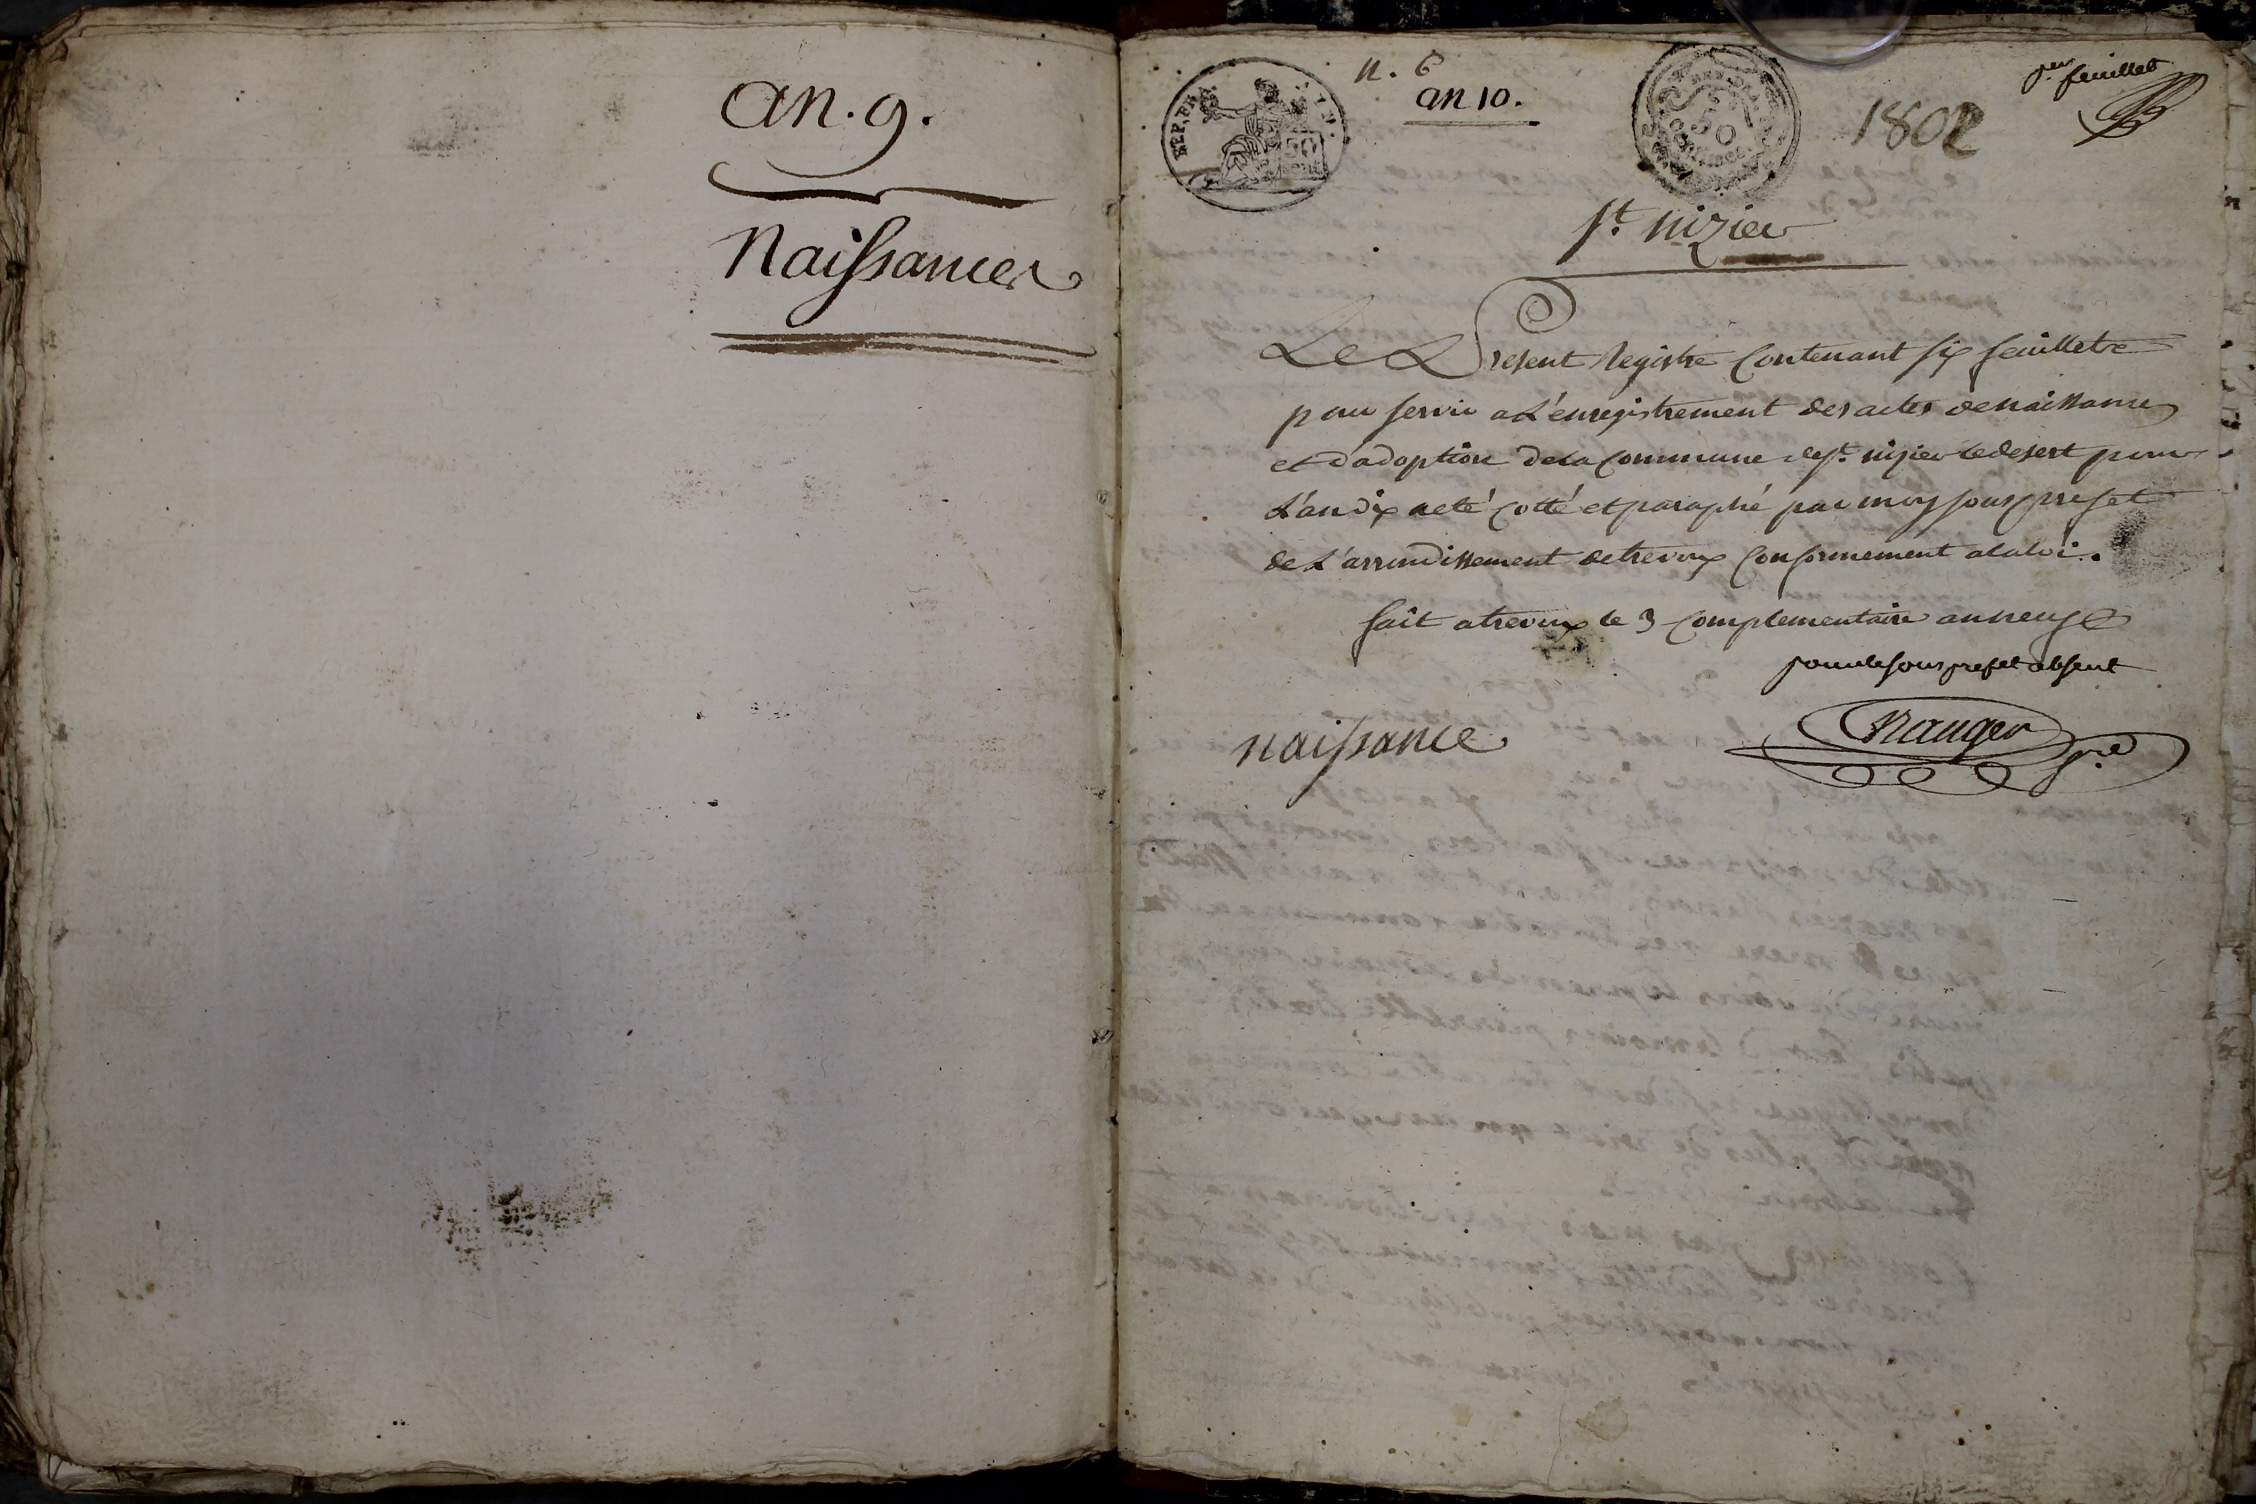 an. 9.
Naissances
n. 6
an 10.
REP. FRA.
50
1802
1er feuillet
St. nizier
Le Présent Registre Contenant six feuillets
pour servir a L'enregistrement des actes de naissances
et d'adoption de la Commune de St. nizier le desert pour
L'an dix a eté cotté et paraphé par moy sous prefet
de L'arrondissement de trevoux Conformement a la loi.
fait a trevoux le 3 complementaire an neuf
pour le sous prefet absent
naissance